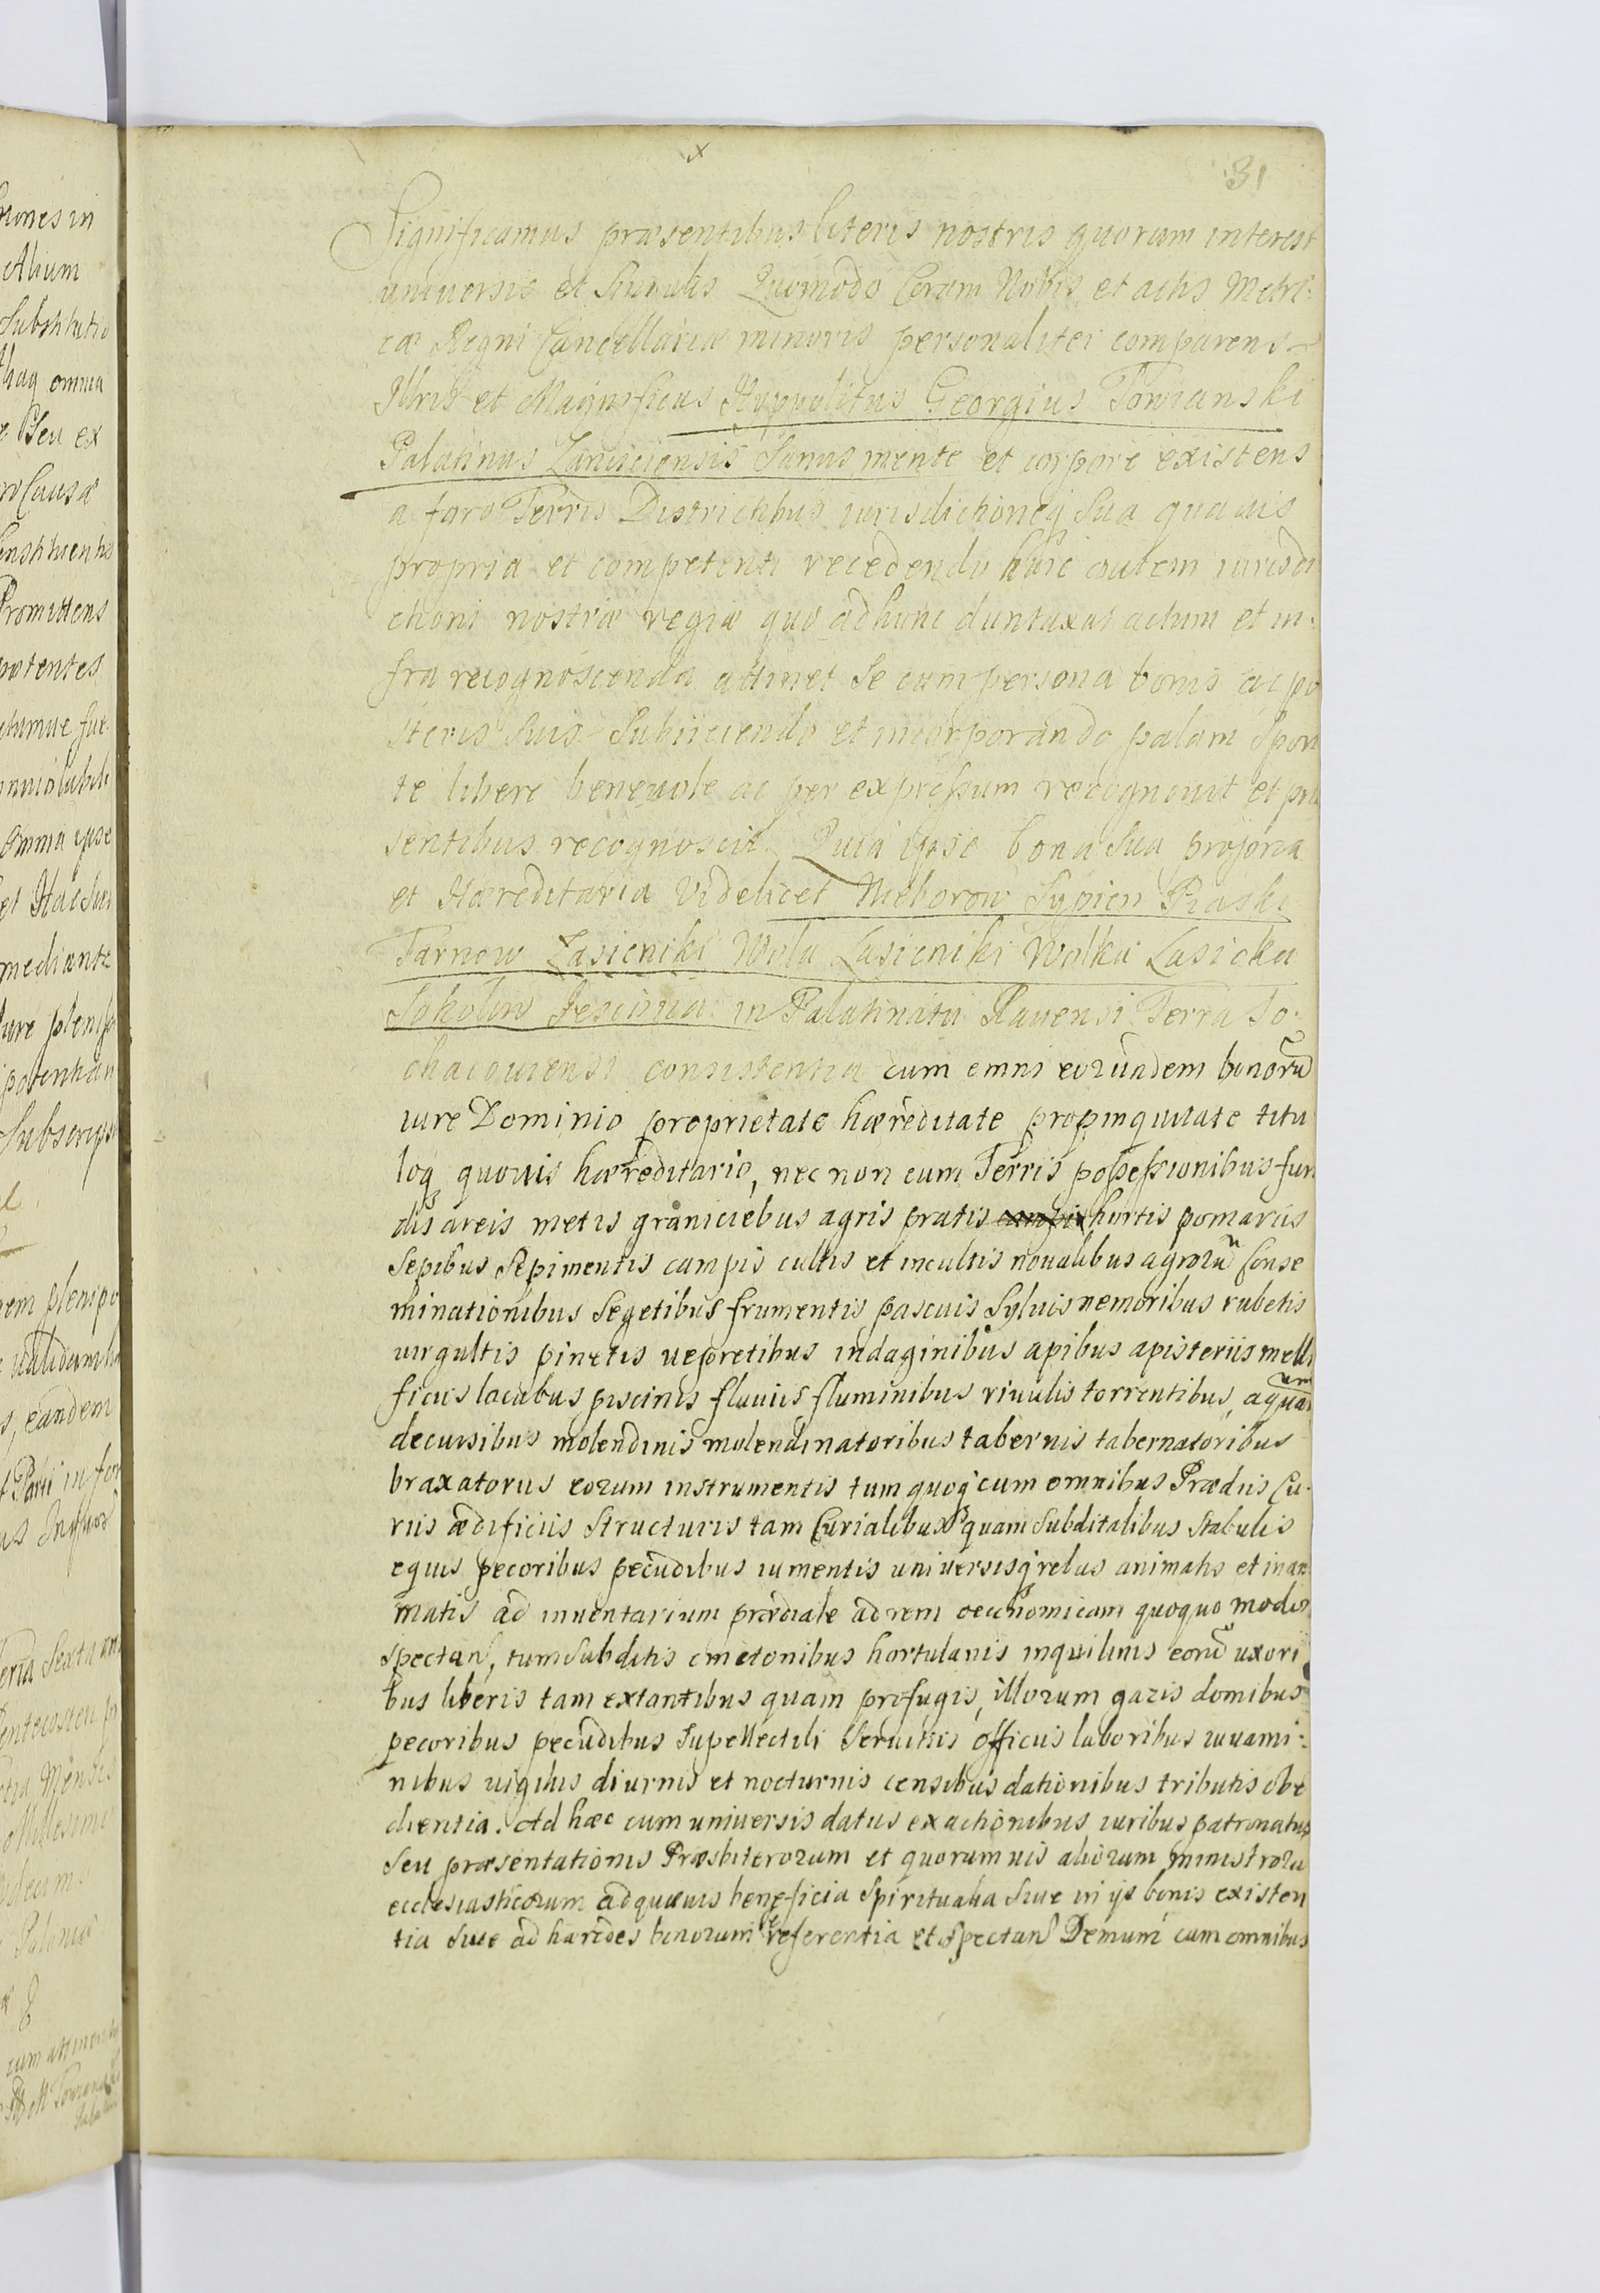 x
31
Significamus præsentibus literis nostris quorum interest
uniuersis et singulis Quomodo Coram Nobis et actis Metri:
cæ Regni Cancellariæ minoris personaliter comparens
Illris et Magnificus Hyppolitus Georgius Towianski
Palatinus Lanciciensis Sanus mente et corpore existens
a foro Terris Districtibus iurisdictioneq Sua quauis
propria et competenti recedendo huic autem iurisdi
ctioni nostræ regiæ quo ad hunc duntaxat actum et in:
fra recognoscenda attinet Se cum persona bonis ac po
steris Suis Subiiciendo et incorporando palam Spon
te libere beneuole ac per expressum recognouit et præ
sentibus recognoscit. Quia ipse bona Sua propria
et Hæreditaria Videlicet Nieborow Sypien Piaski
Tarnow Lasieczniki Wola Lasicniki Wolka Lasicka
Sokolow in Palatinatu Rauensi Terra So:
chaczouiensi consistentia cum omni eorundem bonorũ
iure Dominio proprietate hæreditate propinquitate titu
loq quouis hæreditario, nec non cum Terris possessionibus fun
dis areis metis graniciebus agris pratis campis hortis pomariis
Sepibus Sepimentis campis cultis et incultis noualibus agrorũ Conse
minationibus Segetibus frumentis pascuis Syluis nemoribus rubetis
uirgultis pinetis uepretibus indaginibus apibus apisteriis melli
ficiis lacubus piscinis fluuiis fluminibus riuulis torrentibus, aquarum
decursibus molendinis molendinatoribus tabernis tabernatoribus
braxatoriis eorum instrumentis tum quoq cum omnibus Prædiis Cu:
riis ædificiis Structuris tam Curialibus quam Subditalibus Stabulis
equis pecoribus pecudibus iumentis uniuersisq rebus animatis et inani
matis ad inuentarium prædiale ad rem oeconomicam quoquo modo
Spectan, tum Subditis cmetonibus hortulanis inquilinis eorũ uxori
bus liberis tam extantibus quam profugis, illorum gazis domibus
pecoribus pecudibus Supellectili Seruitiis officiis laboribus iuuami:
nibus uigiliis diurnis et nocturnis censibus dationibus tributis obe
dientia. Ad hæc cum uniuersis datiis exactionibus iuribus patronatus
Seu præsentationis Præsbiterorum et quorumuis aliorum ministrorũ
ecclesiasticorum ad quæuis beneficia Spiritualia Siue in ijs bonis existen
tia Siue ad hæredes bonorum referentia et Spectan Demum cum omnibus